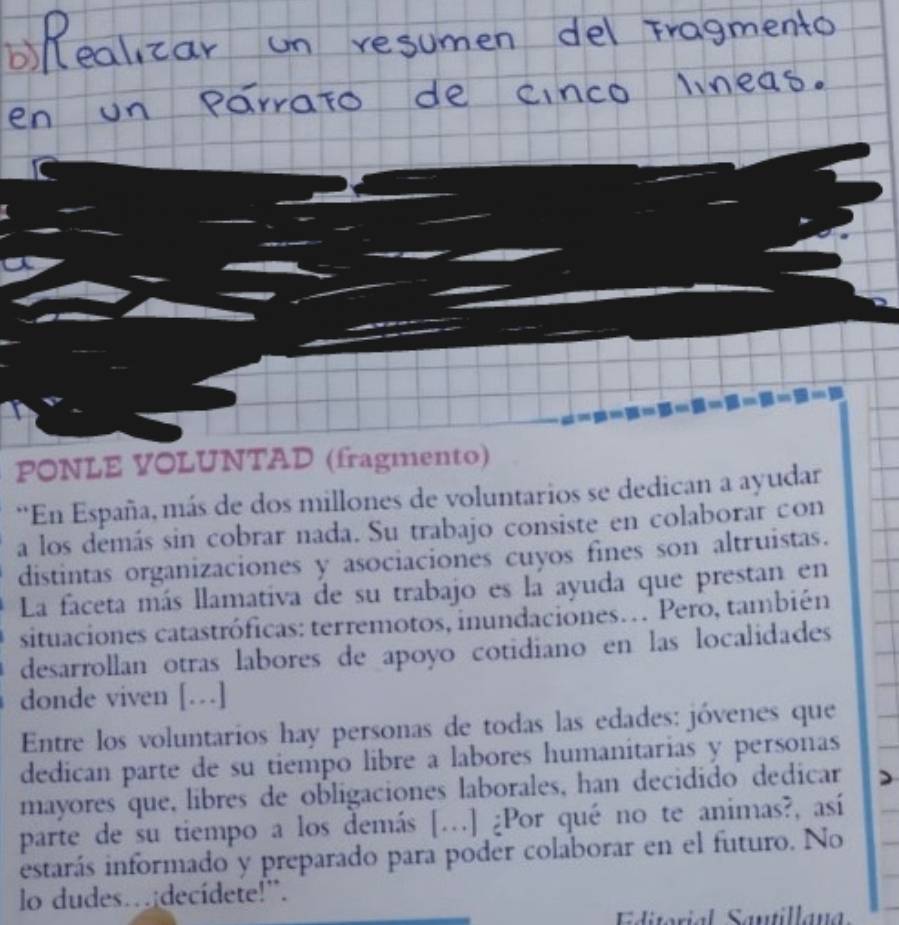 b) Realizar un resumen del fragmento
en un párrafo de cinco lineas.
PONLE VOLUNTAD (fragmento)
“En España, más de dos millones de voluntarios se dedican a ayudar
a los demás sin cobrar nada. Su trabajo consiste en colaborar con
distintas organizaciones y asociaciones cuyos fines son altruistas.
La faceta más llamativa de su trabajo es la ayuda que prestan en
situaciones catastróficas: terremotos, inundaciones... Pero, también
desarrollan otras labores de apoyo cotidiano en las localidades
donde viven [...]
Entre los voluntarios hay personas de todas las edades: jóvenes que
dedican parte de su tiempo libre a labores humanitarias y personas
mayores que, libres de obligaciones laborales, han decidido dedicar
parte de su tiempo a los demás [...] ¿Por qué no te animas?, así
estarás informado y preparado para poder colaborar en el futuro. No
lo dudes...¡decídete!”.
Editorial Santillana.